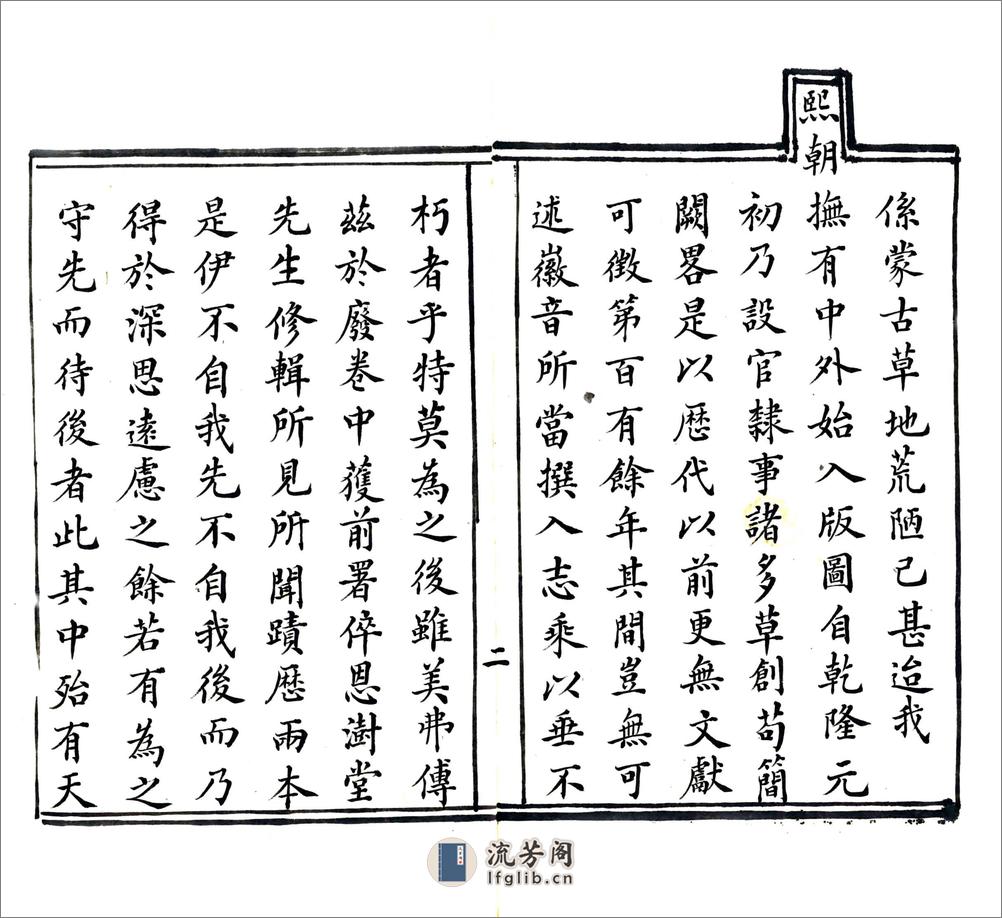 係蒙古草地荒陋已甚迨我
熙朝撫有中外始入版圖自乾隆元
初乃設官隸事諸多草創苟簡
闕畧是以歷代以前更無文獻
可徵第百有餘年其間豈無可
述徽音所當撰入志乘以垂不
二
朽者乎特莫為之後雖美弗傳
茲於廢卷中獲前署倅恩澍堂
先生修輯所見所聞蹟歷兩本
是伊不自我先不自我後而乃
得於深思遠慮之餘若有為之
守先而待後者此其中殆有天
流芳阁
lfglib.cn